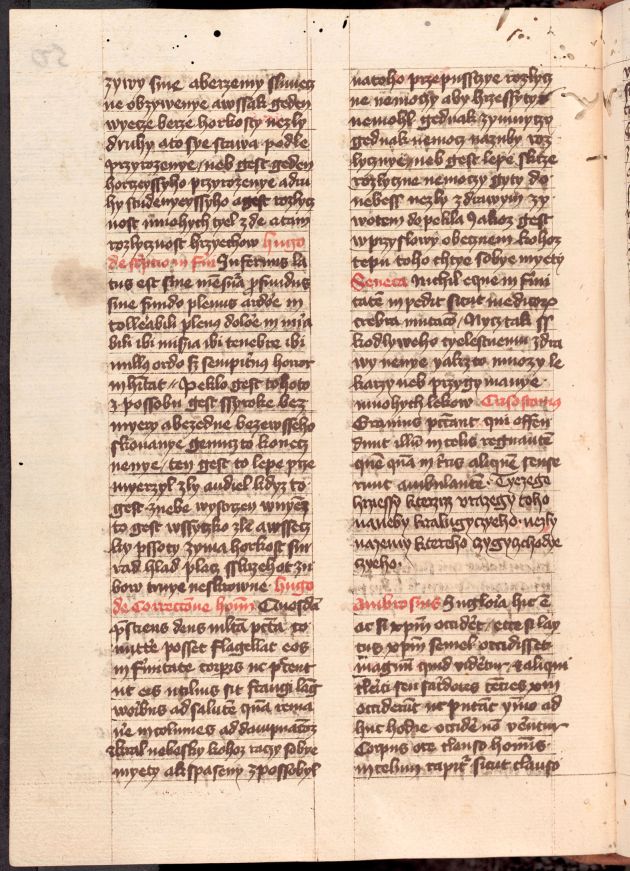 zywy sine aberzemy slunecz
ne obzywenye awssak geden
wyecze berze horkosty nezly
druhy ato sye stawa podle
przyrozenye / neb gest geden
horczeyssyho przyrozenye adru
hy studenyeyssyho agest rozlycz
nost mnohych tyel zde atam
rozlycznost hrzychow Hugo
de Infernus la
tus est sine mensura profundus
sine fundo plenus ardore in
tollerabili plenus dolore in
bili ibi miseria ibi tenebre ibi
nullus ordo sed sempiternus horror
inhabitat Peklo gest tohoto
zpossobu gest ssyroke bez
myery abezedne bezewsseho
skonanye genucz to konecz
nenye / ten gest to lepe prze
myerzyl zly audiel kdyz to
gest znebe wystrczen wnyem
to gest wssyczko zle awssecz
ky pssoty zyma horkost sm
rad hlad placz sskrzehot zu
bow tmye neskrowne Hugo
de Correctione hominis Quosdam
deus multa peccata co
mittere posset flagellat eos
infirmitate corporis ne peccent
ut eis utilius sit frangi lang
woribus ad salutem quam rema
nere incolumes ad dampnacionem
kral nebesky kohoz raczy sobye
myety akspaseny zpossobyl
natoho przepusstye rozlycz
ne nemoczy aby hrzessyty
nemohl gednak zymnyczy
gednak nemocz naznby roz
lycznye / neb gest lepe skrze
rozlyczne nemoczy gyty do
nebess nezly zdrawym zy
wotem dopekla Jakoz gest
wprzyslowy obecznem kohoz
tepu toho chtye sobye myety
Seneca Nichil eque infirmi
tatem inpedit sicut medicorum
crebra mutacio / Nycz tak ss
kodlyweho tyelestnemu zdra
wy nenye yakzto mnozy le
karzy neb przygymanye
mnohych lekow Crisostomus
Grauius peccant qui offen
dunt illum in celis regnantem
quem qui in terris aliquem sense
runt ambulantem Tyezego
hrzessy kterzy vrazegy toho
naneby kralugyczyeho nezly
nazemy ktereho
czyeho
Ambrosius In gloria hic est
ac si christum occidert / ecce si lay
cus christum semel occidisset
magnum quid videretur / et aliqui
clerici seu sacerdotes cencies christum
occiderunt ut putant ymo ad
huc hodie occidere non verentur
Corpus ore clauso hominis
in celum capitur sicut clauso